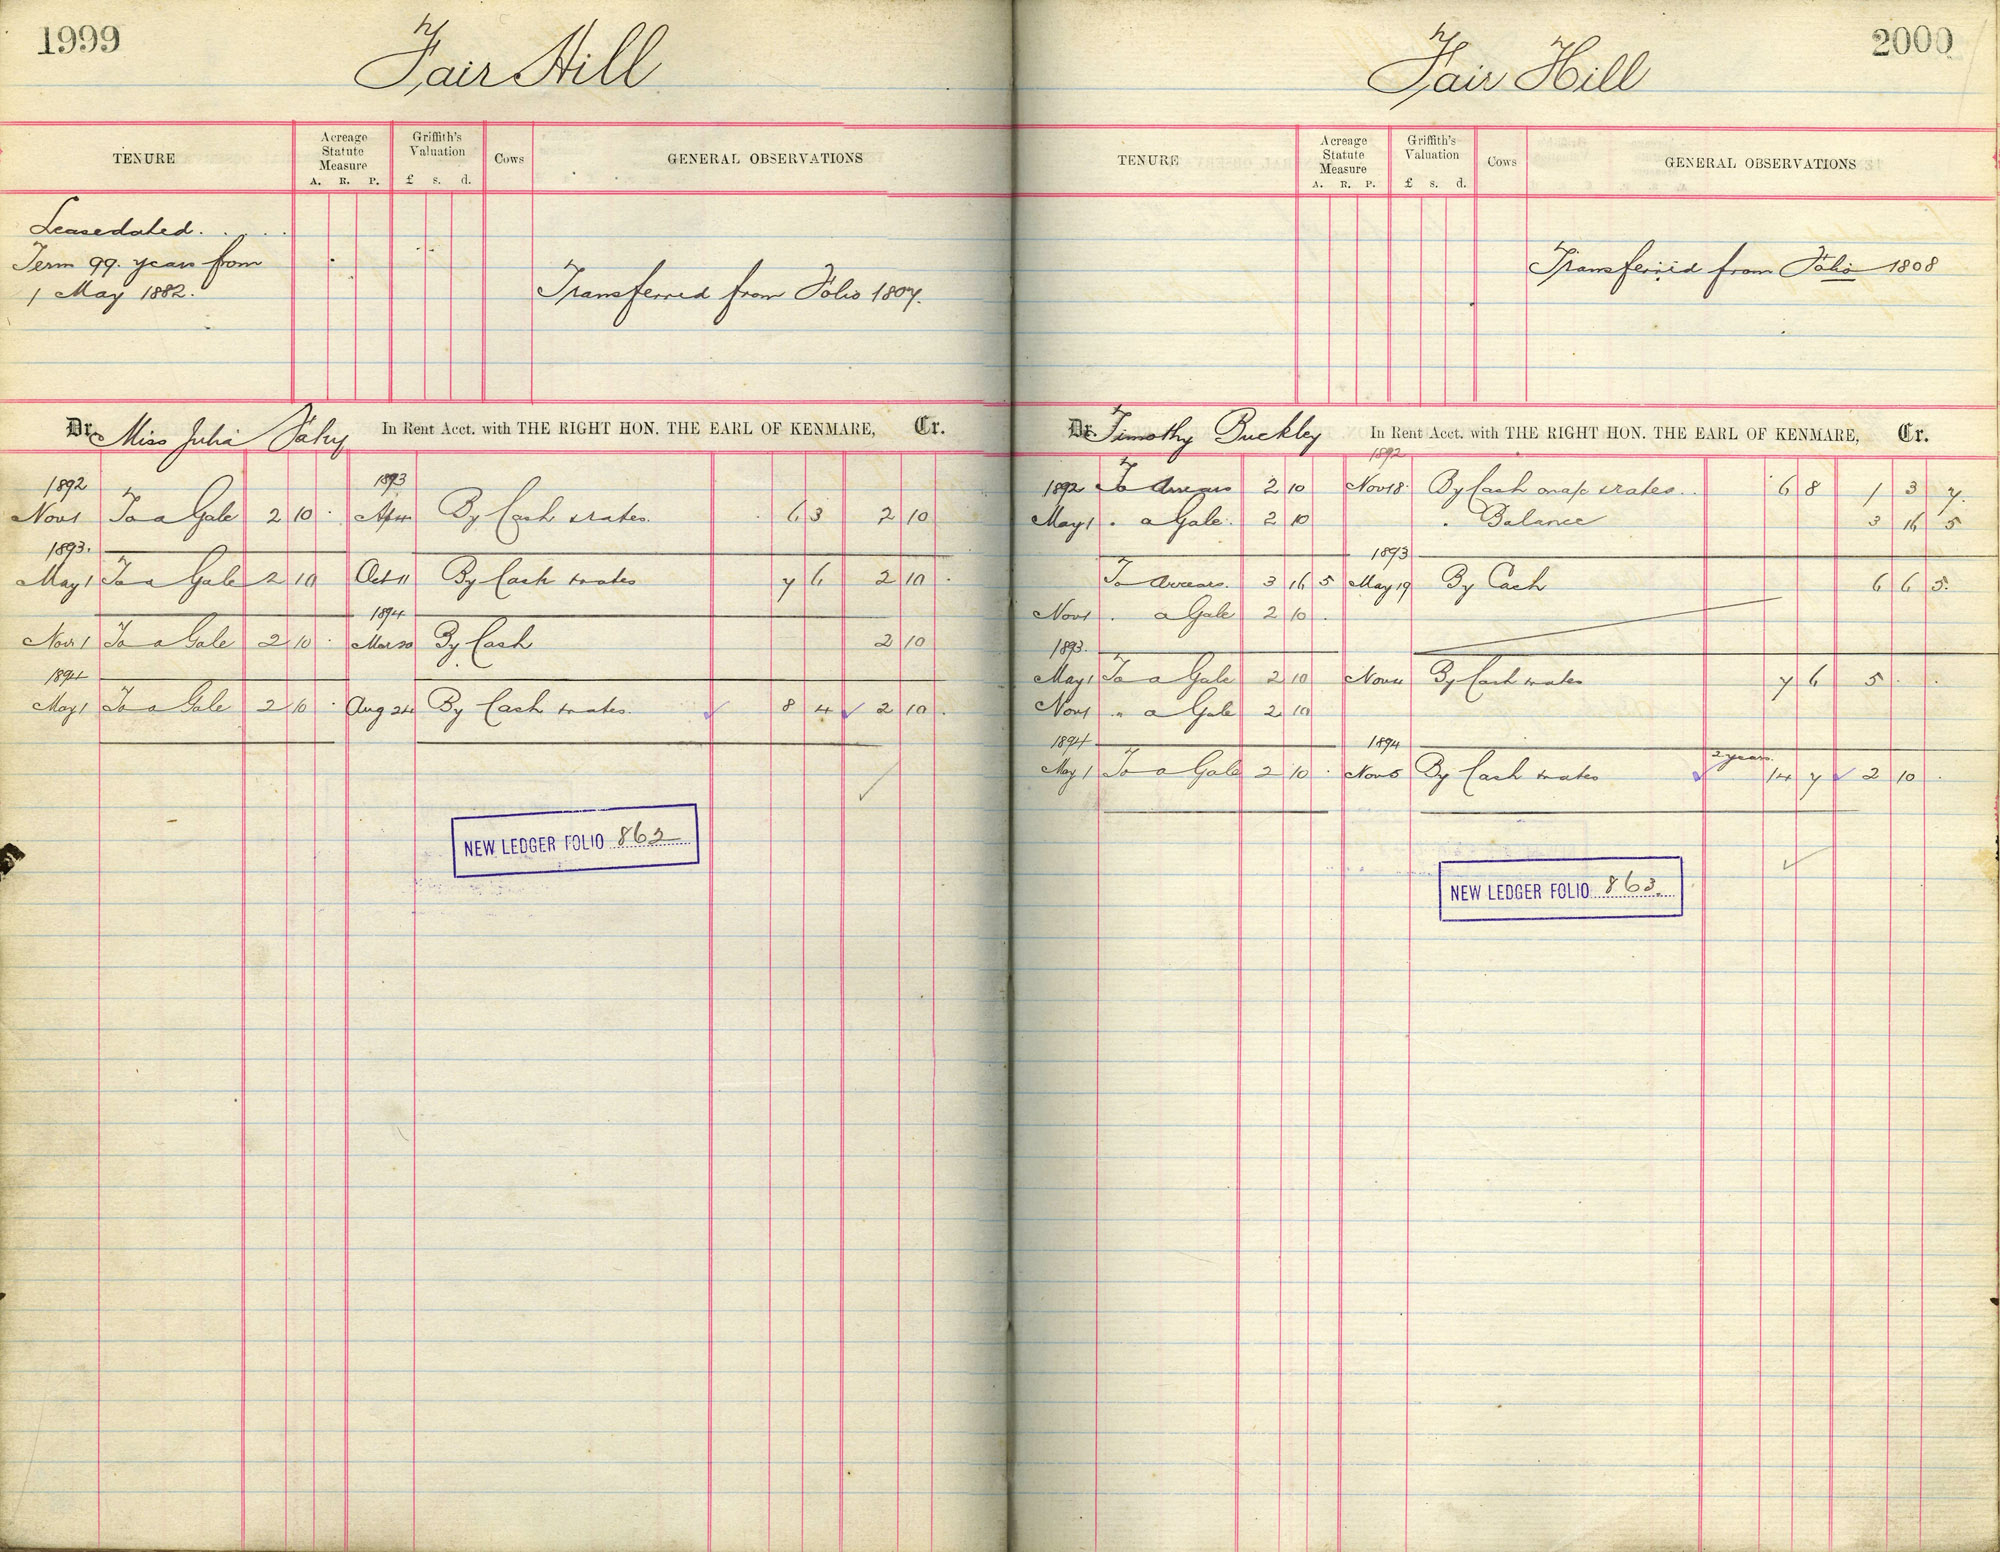 1999
Fair Hill
TENURE
Acreage Statute Measure
A. R. P.
Griffith's Valuation
£ s. d.
Cows
GENERAL OBSERVATIONS
Lease dated. . . .
Term 99. years from
1 May 1882.
Transferred from Folio 1807.
Dr. Miss Julia Fahy In Rent Acct. with THE RIGHT HON. THE EARL OF KENMARE, Cr.
1892 1893
Nov 1 To a Gale 2 10 . Apr 4 By Cash & rates. 6 3 2 10
1893.
May 1 To a Gale 2 10 Oct 11 By Cash & rates 7 6 2 10 .
1894
Nov 1 To a Gale 2 10 . Mar 20 By Cash 2 10
1894
May 1 To a Gale 2 10 . Aug 24 By Cash & rates. 8 4 2 10 .
NEW LEDGER FOLIO 862
2000
Fair Hill
TENURE
Acreage Statute Measure
A. R. P.
Griffith's Valuation
£ s. d.
Cows
GENERAL OBSERVATIONS
Transferred from Folio 1808
Dr. Timothy Buckley In Rent Acct. with THE RIGHT HON. THE EARL OF KENMARE, Cr.
1892
1892 To Arrears 2 10 Nov 18 By Cash on a/c & rates. . 6 8 1 3 7.
May 1 . a Gale. 2 10 . Balance 3 16 5
1893
To Arrears. 3 16 5 May 19 By Cash 6 6 5.
Nov 1 . a Gale 2 10 .
1893.
May 1 To a Gale 2 10 Nov 11 By Cash & rates 7 6 5 . .
Nov 1 " a Gale 2 10
1894 1894
2 years.
May 1 To a Gale 2 10 . Nov 5 By Cash & rates 14 7 2 10 .
NEW LEDGER FOLIO 863.